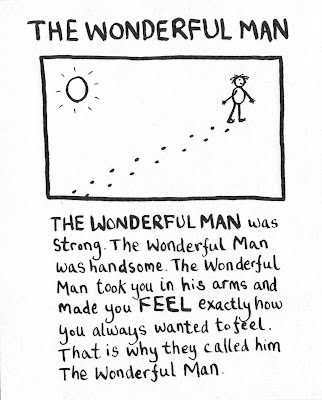 THE WONDERFUL MAN
THE WONDERFUL MAN was
Strong. The Wonderful Man
was handsome. The Wonderful
Man took you in his arms and
made you FEEL exactly how
you always wanted to feel.
That is why they called him
The Wonderful Man.